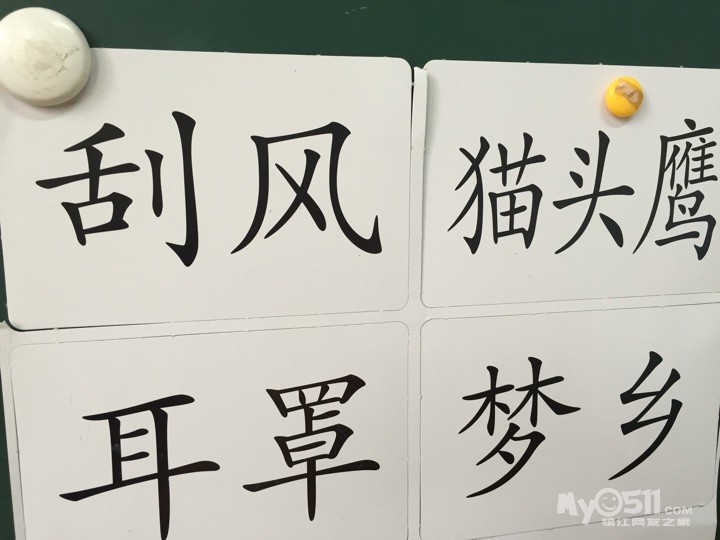 刮风
猫头鹰
耳罩
梦乡
My0511.COM
镇江网友之家